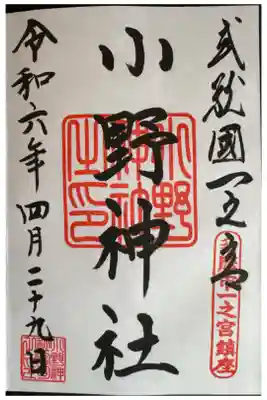 武蔵國一之宮
小野神社
令和六年四月二十九日
一之宮鎮座